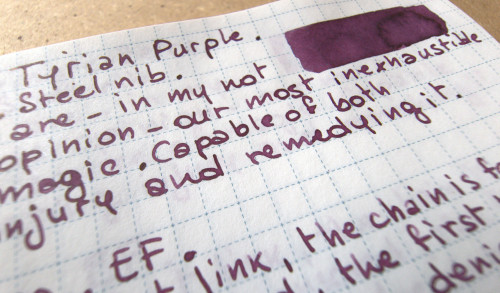 Tyrian Purple.
Steel nib.
are - in my not
opinion - our most inexhaustible
magic. Capable of both
injury and remedying it.
EF.
link, the chain is
the first